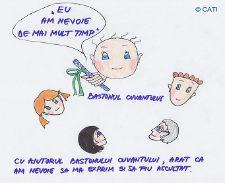 „EU
AM NEVOIE
DE MAI MULT TIMP.”
© CATI
BASTONUL CUVANTULUI
CU AJUTORUL BASTONULUI CUVANTULUI, ARAT CA
AM NEVOIE SA MA EXPRIM SI SA FIU ASCULTAT.